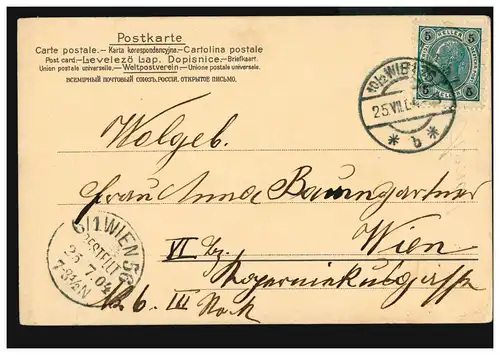 Postkarte
Carte postale.—Karta korespondencyjna.—Cartolina postale
Post card.—Levelező Lap. Dopisnice.—Briefkaart.
Union postale universelle.—Weltpostverein—Unione postale universale.
ВСЕМІРНЫЙ ПОЧТОВЫЙ СОЮЗЪ. РОССІЯ. ОТКРЫТОЕ ПИСЬМО.
5 HELLER 5
5 5
WIEN
25 VII 04
* b *
Wolgeb.
Frau Anna Baumgartner
Wien
VI Bz.
No 6. III Stock
6/1 WIEN 56
BESTELLT
25.7.04
7-8½N